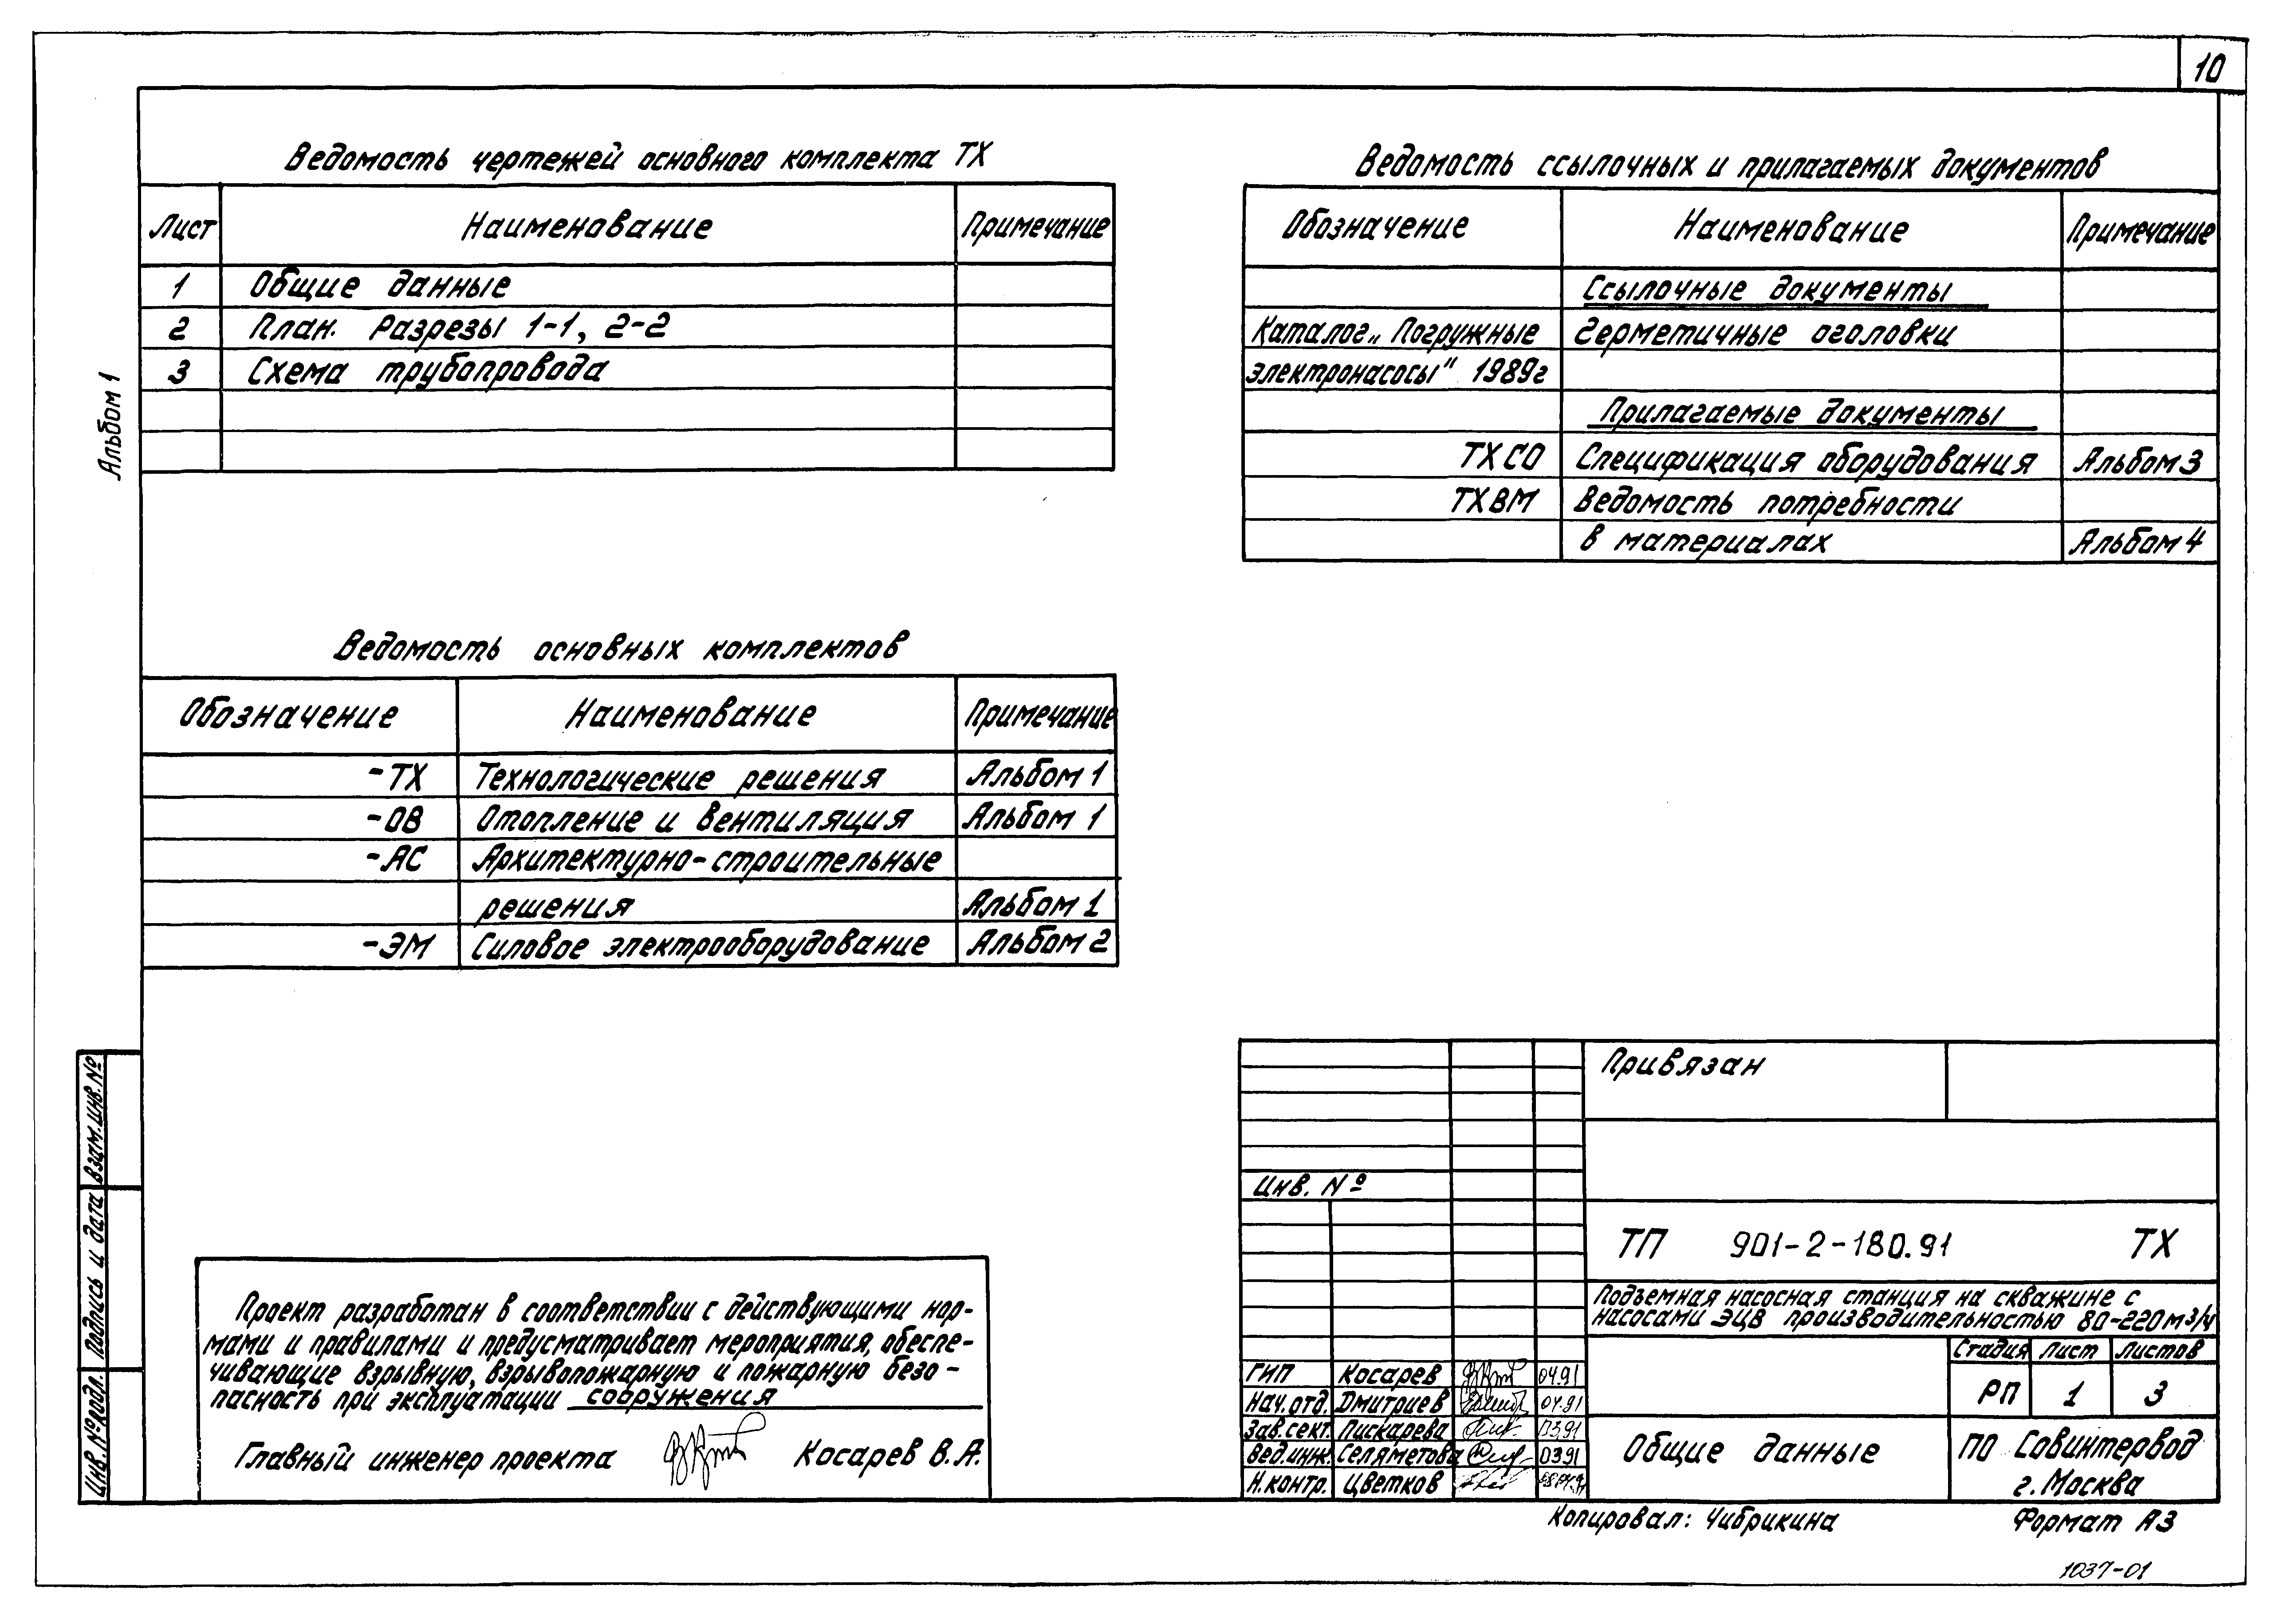 10
Альбом 1
Ведомость чертежей основного комплекта ТХ
Лист Наименование Примечание
1 Общие данные
2 План. Разрезы 1-1, 2-2
3 Схема трубопровода
Ведомость ссылочных и прилагаемых документов
Обозначение Наименование Примечание
Ссылочные документы
Каталог „Погружные Герметичные оголовки
электронасосы" 1989г
Прилагаемые документы
ТХ СО Спецификация оборудования Альбом 3
ТХ ВМ Ведомость потребности
в материалах Альбом 4
Ведомость основных комплектов
Обозначение Наименование Примечание
-ТХ Технологические решения Альбом 1
-ОВ Отопление и вентиляция Альбом 1
-АС Архитектурно-строительные
решения Альбом 1
-ЭМ Силовое электрооборудование Альбом 2
Взам. инв. №
Подпись и дата
Инв. № подл.
Проект разработан в соответствии с действующими нор-
мами и правилами и предусматривает мероприятия, обеспе-
чивающие взрывную, взрывопожарную и пожарную безо-
пасность при эксплуатации сооружения
Главный инженер проекта Косарев В.А.
Привязан
Инв. №
ТП 901-2-180.91 ТХ
Подъемная насосная станция на скважине с
насосами ЭЦВ производительностью 80-220 м3/ч
Стадия Лист Листов
РП 1 3
ГИП Косарев 04.91
Нач. отд. Дмитриев 04.91
Зав. сект. Пискарева 03.91
Вед. инж. Селяметова 03.91
Н. контр. Цветков
Общие данные
ПО Совинтервод
г. Москва
Копировал: Чибрикина Формат А3
1037-01